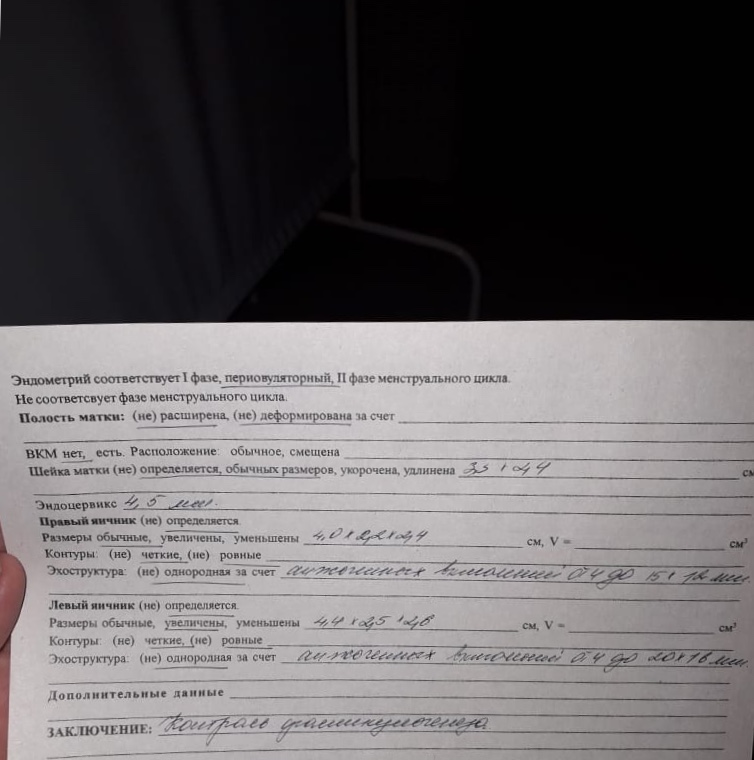 Эндометрий соответствует I фазе, периовуляторный, II фазе менструального цикла.
Не соответсвует фазе менструального цикла.
Полость матки: (не) расширена, (не) деформирована за счет
ВКМ нет, есть. Расположение: обычное, смещена
Шейка матки (не) определяется, обычных размеров, укорочена, удлинена см
Эндоцервикс 4,5 мм.
Правый яичник (не) определяется.
Размеры обычные, увеличены, уменьшены 4,0 x 2,2 x 2,4 см, V = см³
Контуры: (не) четкие, (не) ровные
Эхоструктура: (не) однородная за счет анэхогенных включений d 4 до 15 x 12 мм.
Левый яичник (не) определяется.
Размеры обычные, увеличены, уменьшены 4,4 x 2,5 x 2,8 см, V = см³
Контуры: (не) четкие, (не) ровные
Эхоструктура: (не) однородная за счет анэхогенных включений d 4 до 20 x 18 мм.
Дополнительные данные
ЗАКЛЮЧЕНИЕ: Контроль фолликулогенеза